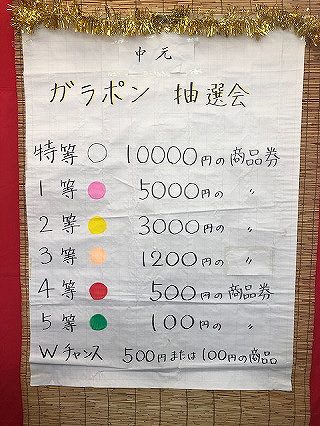 中元
ガラポン 抽選会
特等 ○ 10000円の商品券
1等 5000円の 〃
2等 3000円の 〃
3等 1200円の 〃
4等 500円の商品券
5等 100円の 〃
Wチャンス 500円または100円の商品